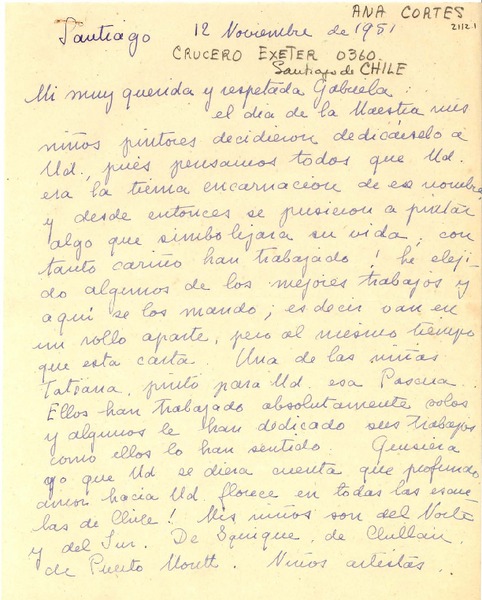 ANA CORTES
Santiago 12 Noviembre de 1951
CRUCERO EXETER 0360
Santiago de CHILE
Mi muy querida y respetada Gabriela:
el dia de la Maestra mis
niños pintores decidieron dedicárselo a
Ud., pués pensamos todos que Ud.
era la tierna encarnacion de ese nombre,
y desde entonces se pusieron a pintar
algo que simbolizara su vida; con
tanto cariño han trabajado! he eleji-
do algunos de los mejores trabajos y
aquí se los mando; es decir van en
un rollo aparte, pero al mismo tiempo
que esta carta. Una de las niñas
Tatiana, pintó para Ud. esa Pascua..
Ellos han trabajado absolutamente solos
y algunos le han dedicado sus trabajos
como ellos lo han sentido. Quisiera
yo que Ud se diera cuenta que profundo
amor hacia Ud. florece en todas las escue-
las de Chile! Mis niños son del Norte
y del Sur. De Iquique, de Chillán,
de Puerto Montt. Niños artistas..